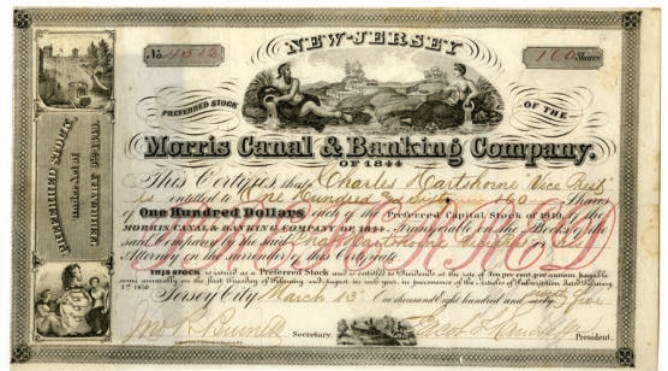 NEW-JERSEY
No. 4512
160 Shares
PREFERRED STOCK OF THE
Morris Canal & Banking Company.
OF 1844
This Certifies, that Charles Hartshorne Vice Prest
is entitled to One Hundred & Sixty 160 Shares
of One Hundred Dollars each of the Preferred Capital Stock of 1849, of the
MORRIS CANAL & BANKING COMPANY OF 1844. Transferable on the Books of the
said Company by the said Chas Hartshorne or his
Attorney on the surrender of this Certificate.
PREFERRED
THIS STOCK is issued as a Preferred Stock and is entitled to Dividends at the rate of Ten per cent per annum payable
semi annually on the first Tuesday of February and August in each year, in pursuance of the Articles of Subscription dated
1st 1850
Jersey City March 13th One thousand Eight hundred and sixty five
Secretary.
President.
PREFERRED STOCK
TEN PER CENT
per Annum